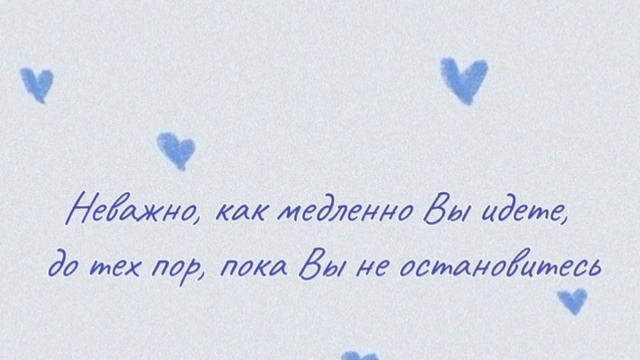 Неважно, как медленно Вы идете,
до тех пор, пока Вы не остановитесь